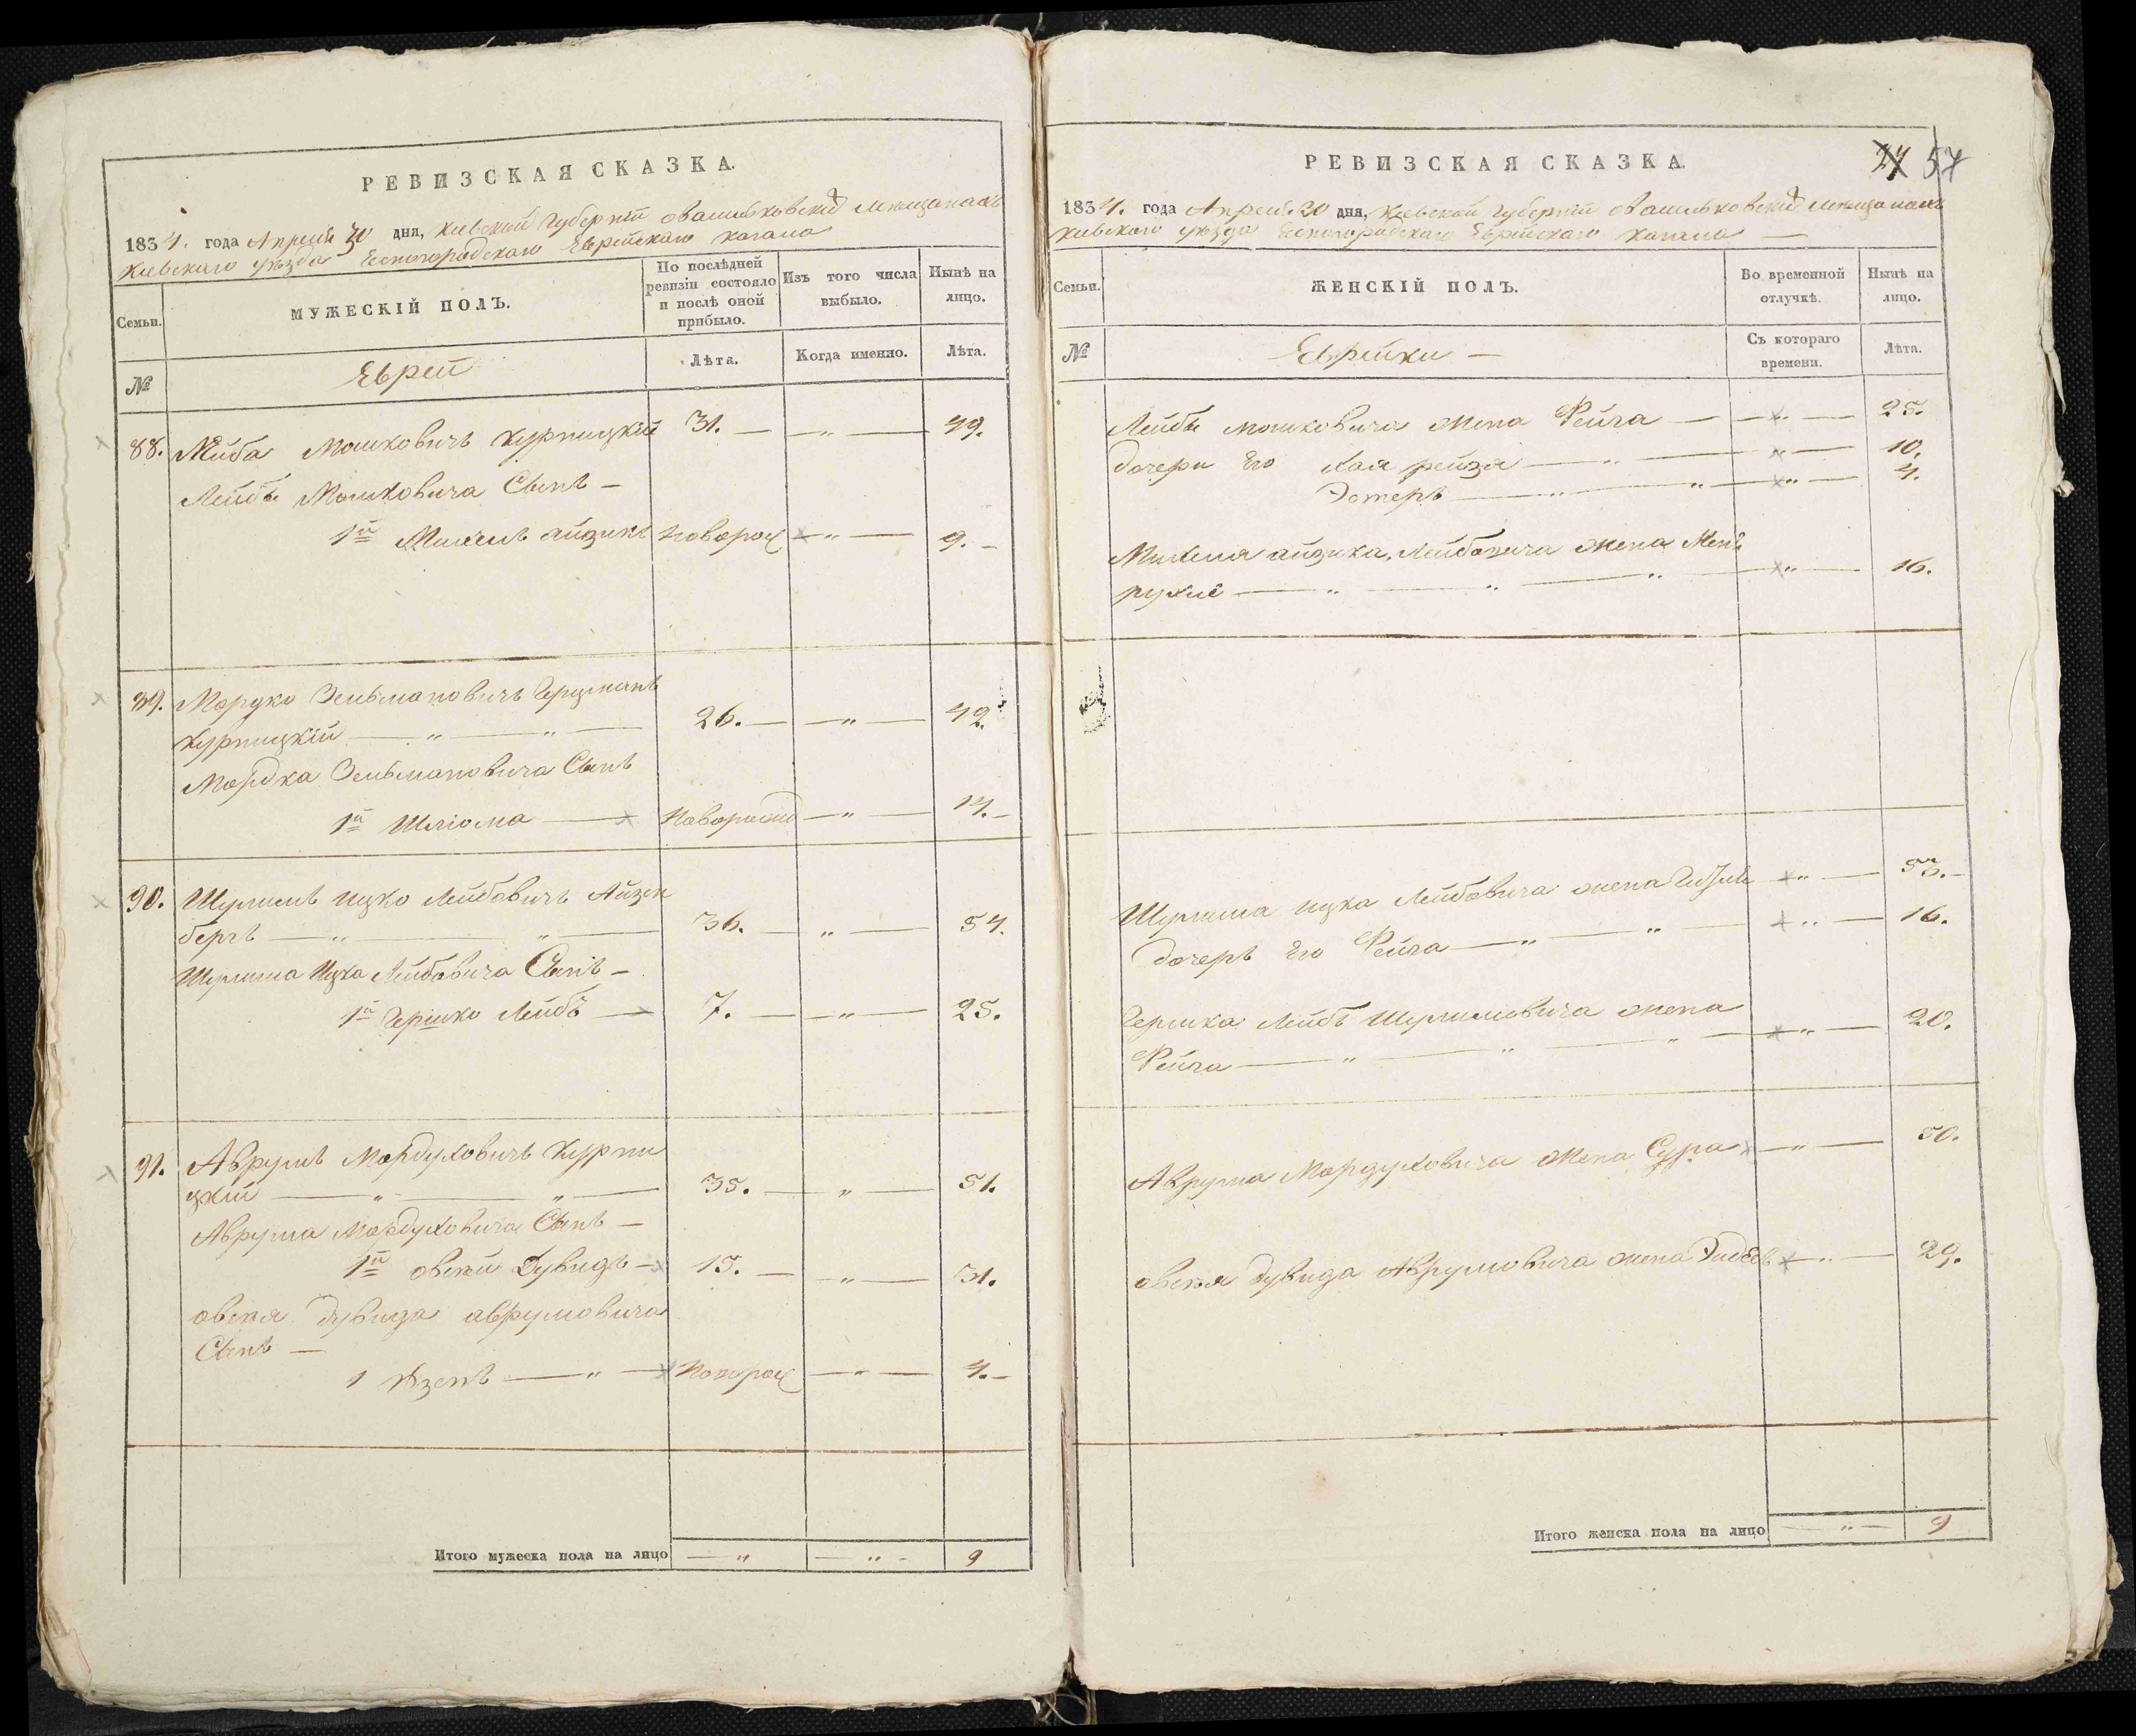 РЕВИЗСКАЯ СКАЗКА.
1834. года Апреля 30 дня, Киевской Губерніи о Васильковскихъ мещанахъ
Киевского уезда Еврейскаго кагала
Семьи.
МУЖЕСКІЙ ПОЛЪ.
По послѣдней ревизіи состояло и послѣ оной прибыло.
Изъ того числа выбыло.
Нынѣ на лицо.
№
Еврей
Лѣта.
Когда именно.
Лѣта.
88. Лейба Мошковичъ Курницкій 31. — — „ — 49.
Лейбы Мошковича Сынъ —
1й Михель айзикъ новорож — „ — 9. —
89. Мордко Зельмановичъ Гершманъ
Курницкій — „ — „ — 26. — — „ — 42.
Мордка Зельмановича Сынъ
1й Шліома — новорожд — „ — 14. —
90. Шулимъ Ицко Лейбовичъ Айзен
бергъ — „ — „ — 36. — „ — 54.
Шулима Ицка Лейбовича Сынъ —
1й Гершко Лейбъ — 7. — — „ — 25.
91. Аврумъ Мордуховичъ Курни
цкій — „ — „ — 35. — „ — 51.
Аврума Мордуховича Сынъ —
1й овсей Дувидъ — 15. — — „ — 31.
овсея Дувида аврумовича
Сынъ —
1 — „ — новорож — „ — 4. —
Итого мужеска пола на лицо — „ — „ - 9
РЕВИЗСКАЯ СКАЗКА.
57
1834. года Апреля 30 дня, Киевской Губерніи о Васильковскихъ мещанахъ
Киевского уезда Еврейскаго кагала —
Семьи.
ЖЕНСКІЙ ПОЛЪ.
Во временной отлучкѣ.
Нынѣ на лицо.
№
Еврейки —
Съ котораго времени.
Лѣта.
Лейбы Мошковича жена Фейга — — „ — 25.
дочери Его Хая рейзя — „ — „ — 10.
Эстеръ — „ — „ — „ — 4.
Михеля айзика Лейбовича жена Мень
рухле — „ — „ — „ — „ — 16.
Шулима ицка Лейбовича жена — „ — 53. —
дочерь Его Фейга — „ — „ — „ — 16.
Гершка Лейбъ Шулимовича жена
Фейга — „ — „ — „ — „ — 20.
Аврума Мордуховича жена Сура — „ — 50.
овсея Дувида Аврумовича жена — „ — 29.
Итого женска пола на лицо — „ — 9